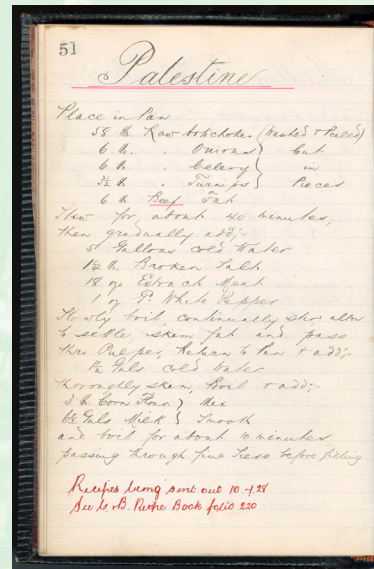 51
Palestine
Place in Pan
58 lb Raw Artichokes (Washed & Peeled)
6 lb. " Onions } Cut
6 lb " Celery } in
3½ lb " Turnips } Pieces
6 lb Beef Fat
Stew for about 40 minutes,
then gradually add;-
5 Gallons cold Water
lb. Broken Salt
18 ozs Extract Meat
1 oz Gd White Pepper
Slowly boil, continually stir allow
to settle, skim fat and pass
thro Pulper, Return to Pan & add;-
1½ Gals cold Water
thoroughly skim, Boil & add;-
3 lb. Corn Flour } Mix
6½ Gals Milk } Smooth
and boil for about 10 minutes,
passing through fine before filling
Recipes being sent out 10-1-28
See & B. Book folio 220